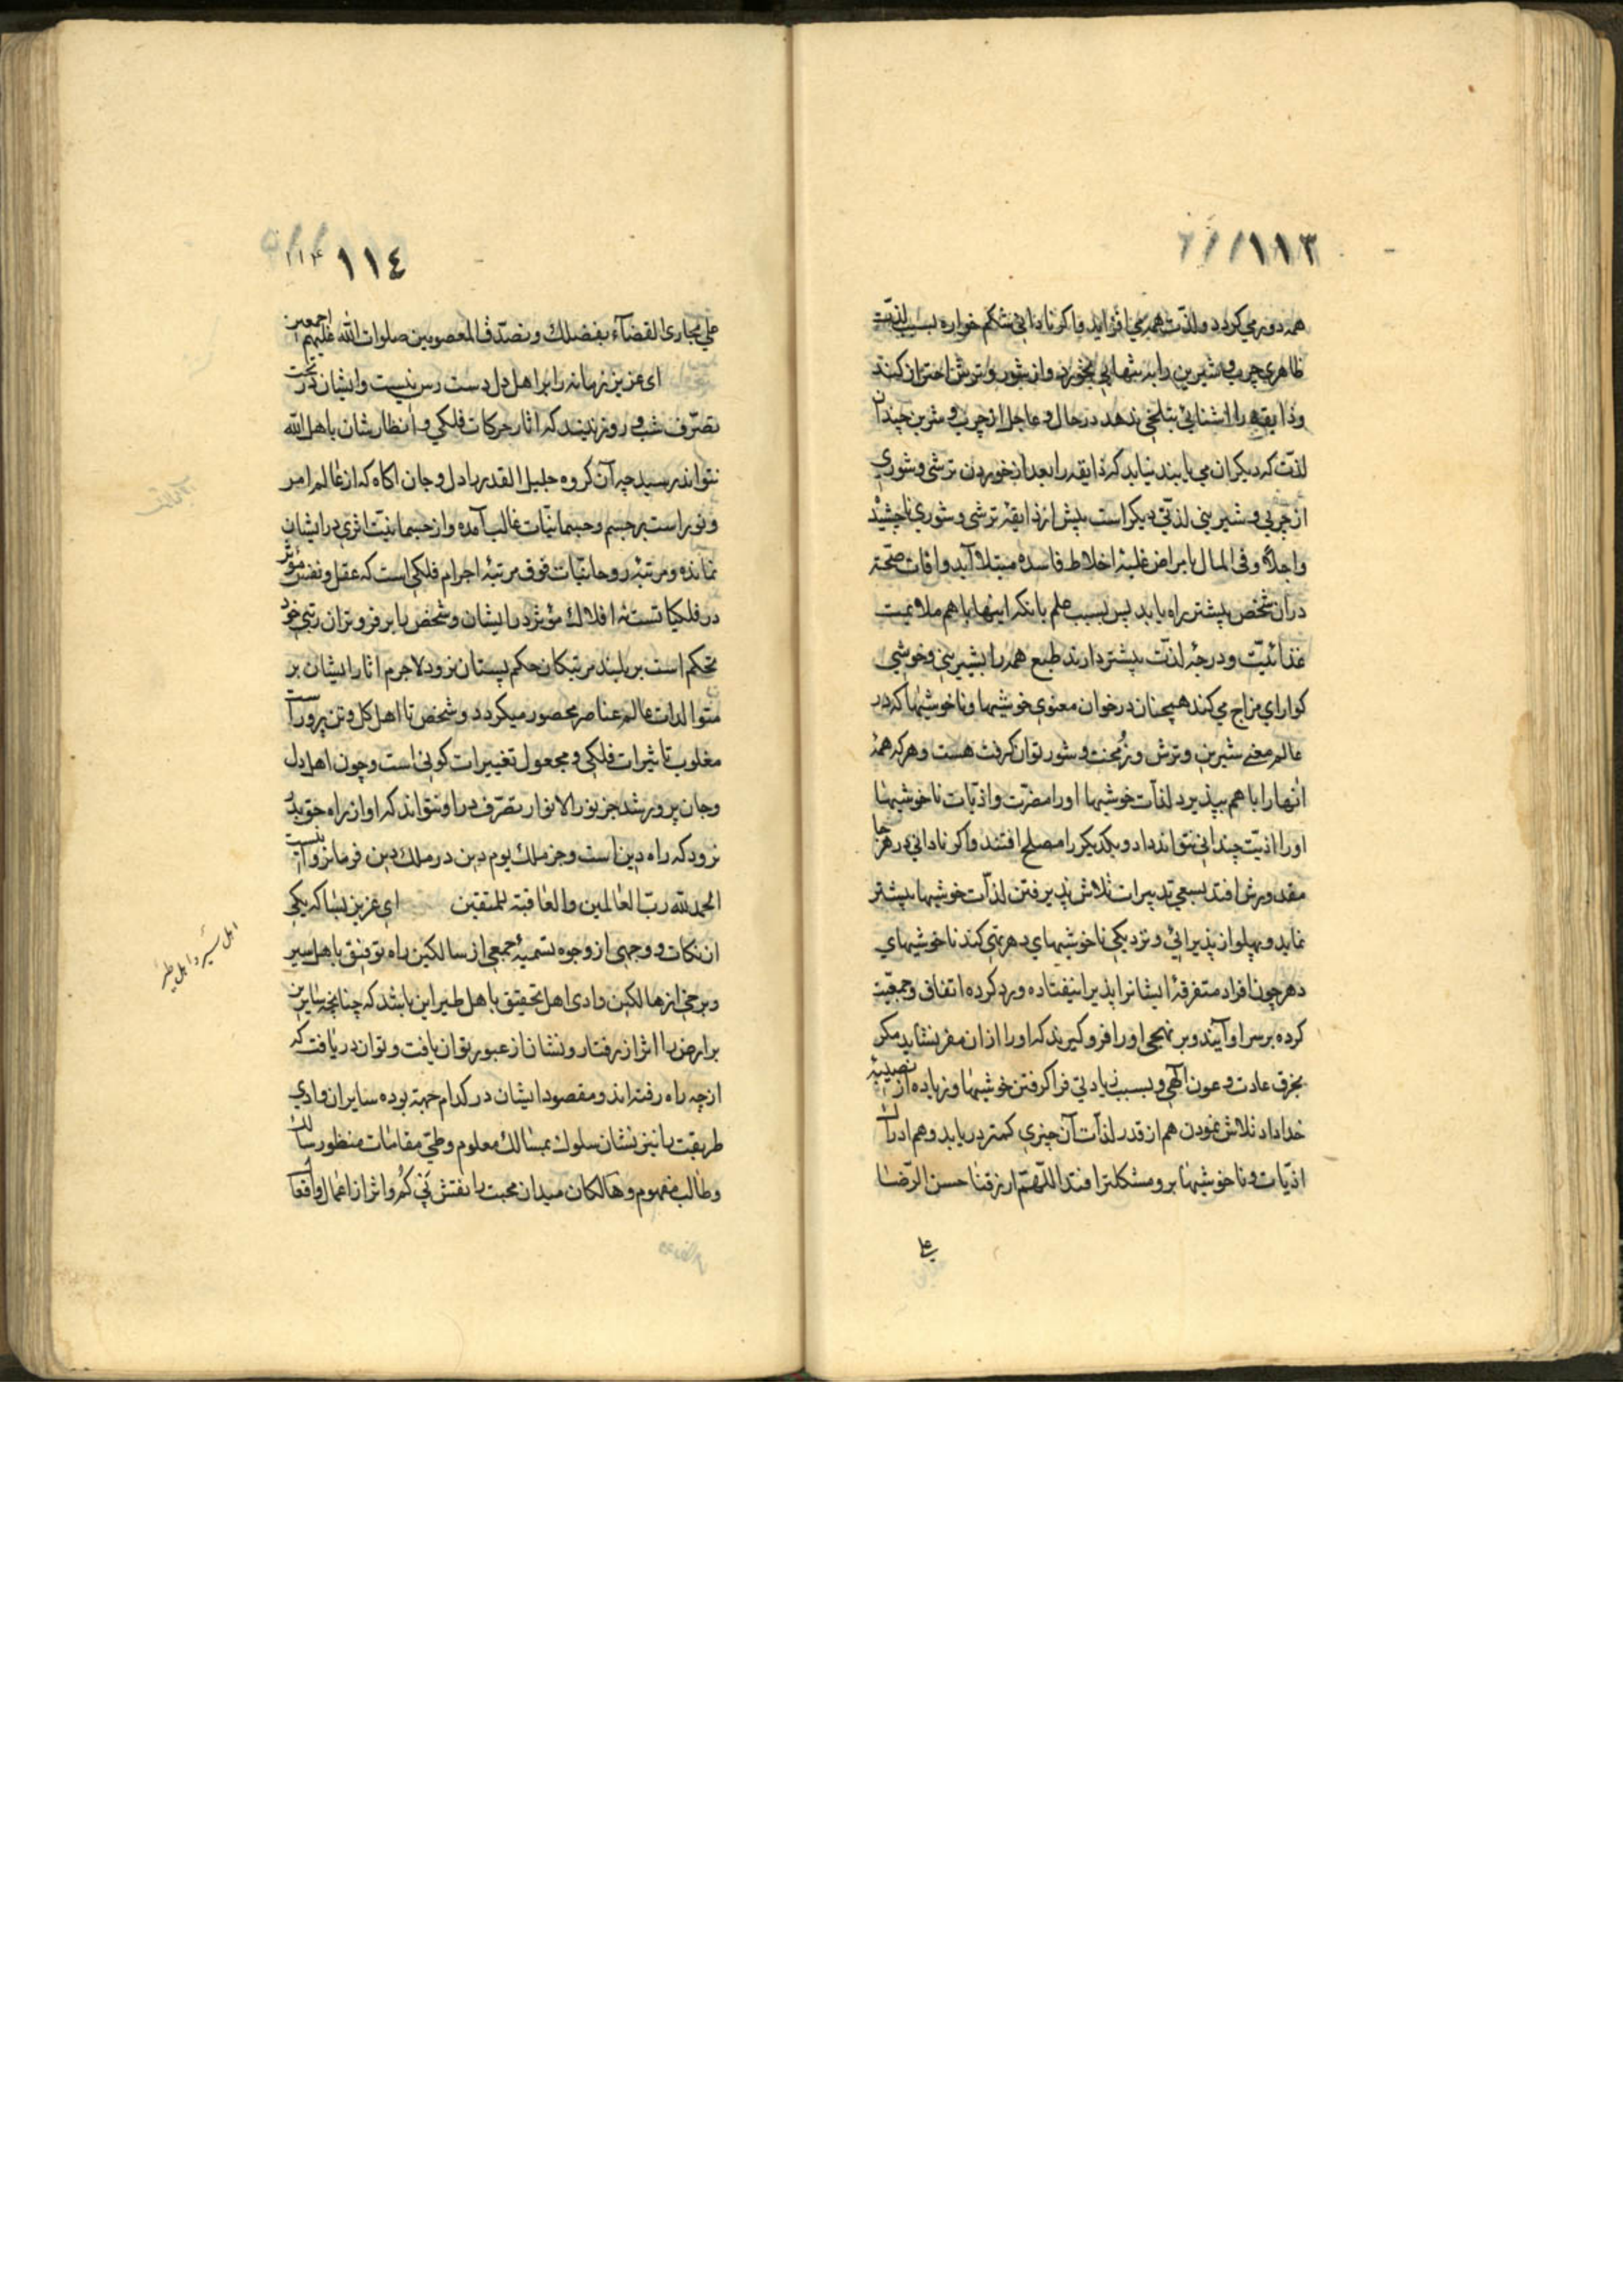 ١١٣
همه دور می کردد ولذّت همه می افزاید واکر نادانی شکم خواره بسبب لذّت
ظاهری چرب و شیرین را به تنهایی بخورد واز شور و ترش احتراز کند
وذایقه را اشنایی بتلخی ندهد در حال و عاجل از چرب و شیرین چندان
لذّت که دیکران می یابند نیابد که ذایقه را بعد از خوردن ترشی و شوری
از چربی و شیرینی لذتی دیکر است پیش از ذایقۀ ترشی و شوری ناچشیده
واجلاً و فی المال بامراض غلبۀ اخلاط فاسده مبتلا آید وافات صحّت
در آن شخص بیشتر راه یابد پس بسبب علم بانکه اینها با هم ملایمت
غذائیّت و درجۀ لذّت بیشتر دارند طبع همه را بشیرینی وخوشی
کوارای مزاج می کند همچنان در خوان معنوی خوشیها وناخوشیها که در
عالم معنی شیرین وترش وزُمخت وشور توان کرفت هست وهر که همۀ
انها را با هم بپذیرد لذّات خوشیها اورا مضرّت واذیّات ناخوشیها
اورا اذیّت چندانی نتواند داد و یکدیکر را مصلح افتند واکر نادانی در هر جا
مقدورش افتد بسعی تدبیرات تلاش پذیرفتن لذّات خوشیها بیشتر
نماید و پهلو از پذیرائی ونزدیکی ناخوشیهای دهر تهی کند ناخوشیهای
دهر چون افراد متفرقۀ ایشانرا پذیرا نیفتاده ورد کرده اتفاق وجمعیّت
کرده بر سر او آیند و بر نهجی اورا فرو کیرند که اورا از ان مفر نشاید مکر
بخرق عادت و عون الٓهی و بسبب زیادتی فرا کرفتن خوشیها وزیاده از نصیبۀ
خداداد تلاش نمودن هم از قدر لذّات آن چیزی کمتر دریابد و هم ادراک
اذیّات و ناخوشیها برو مشکلتر افتد اللّهمّ ارزقنا حسن الرّضا
علی
١١٤
١١۴
علی مجاری القضآء بفضلك وتصدّق المعصومین صلوات الله علیهم اجمعین
ای عزیز زمانه را بر اهل دل دست رس نیست وایشان در تحت
تصرّف شب و روز نیند که اثار حرکات فلکی و انظارشان باهل الله
نتواند رسید چه آن کروه جلیل القدر با دل و جان اکاه که از عالم امر
ونور است بر جسم وجسمانیّات غالب آمده واز جسمانیّت اثری در ایشان
نمانده ومرتبۀ روحانیّات فوق مرتبۀ اجرام فلکی است که عقل ونفس مؤثر
در فلکیاتست نه افلاك مؤثر در ایشان وشخص را بر فروتران رتبی خود
تحکم است بر بلند مرتبکان حکم پستان نرود لاجرم اثار ایشان بر
متوالدات عالم عناصر محصور میکردد و شخص تا اهل کل وتن پرور است
مغلوب تاثیرات فلکی و مجعول تغییرات کونی است وچون اهل دل
وجان پرور شد جز نور الانوار تصرّف در او نتواند که او از راه حق بدر
نرود که راه دین است وجز ملك یوم دین در ملك دین فرمانروا نیست
الحمد لله ربّ العالمین والعاقبة للمتقین ای عزیز بسا که یکی
از نکات و وجهی از وجوه تسمیۀ جمعی از سالکین راه توفیق باهل سیر
وبرخی از هالکین وادی اهل تحقیق باهل طیر این باشد که چنانچه سایرین
بر ارض را اثر از رفتار ونشان از عبور توان یافت وتوان دریافت که
از چه راه رفته اند ومقصود ایشان در کدام جهة بوده سایران وادی
طریقت را نیز نشان سلوك بمسالك معلوم وطیّ مقامات منظور سالک
وطالب مفهوم وهالکان میدان محبت را نقش پَی کُم واثر از اعمال واقعا
اهل سیر و اهل طیر